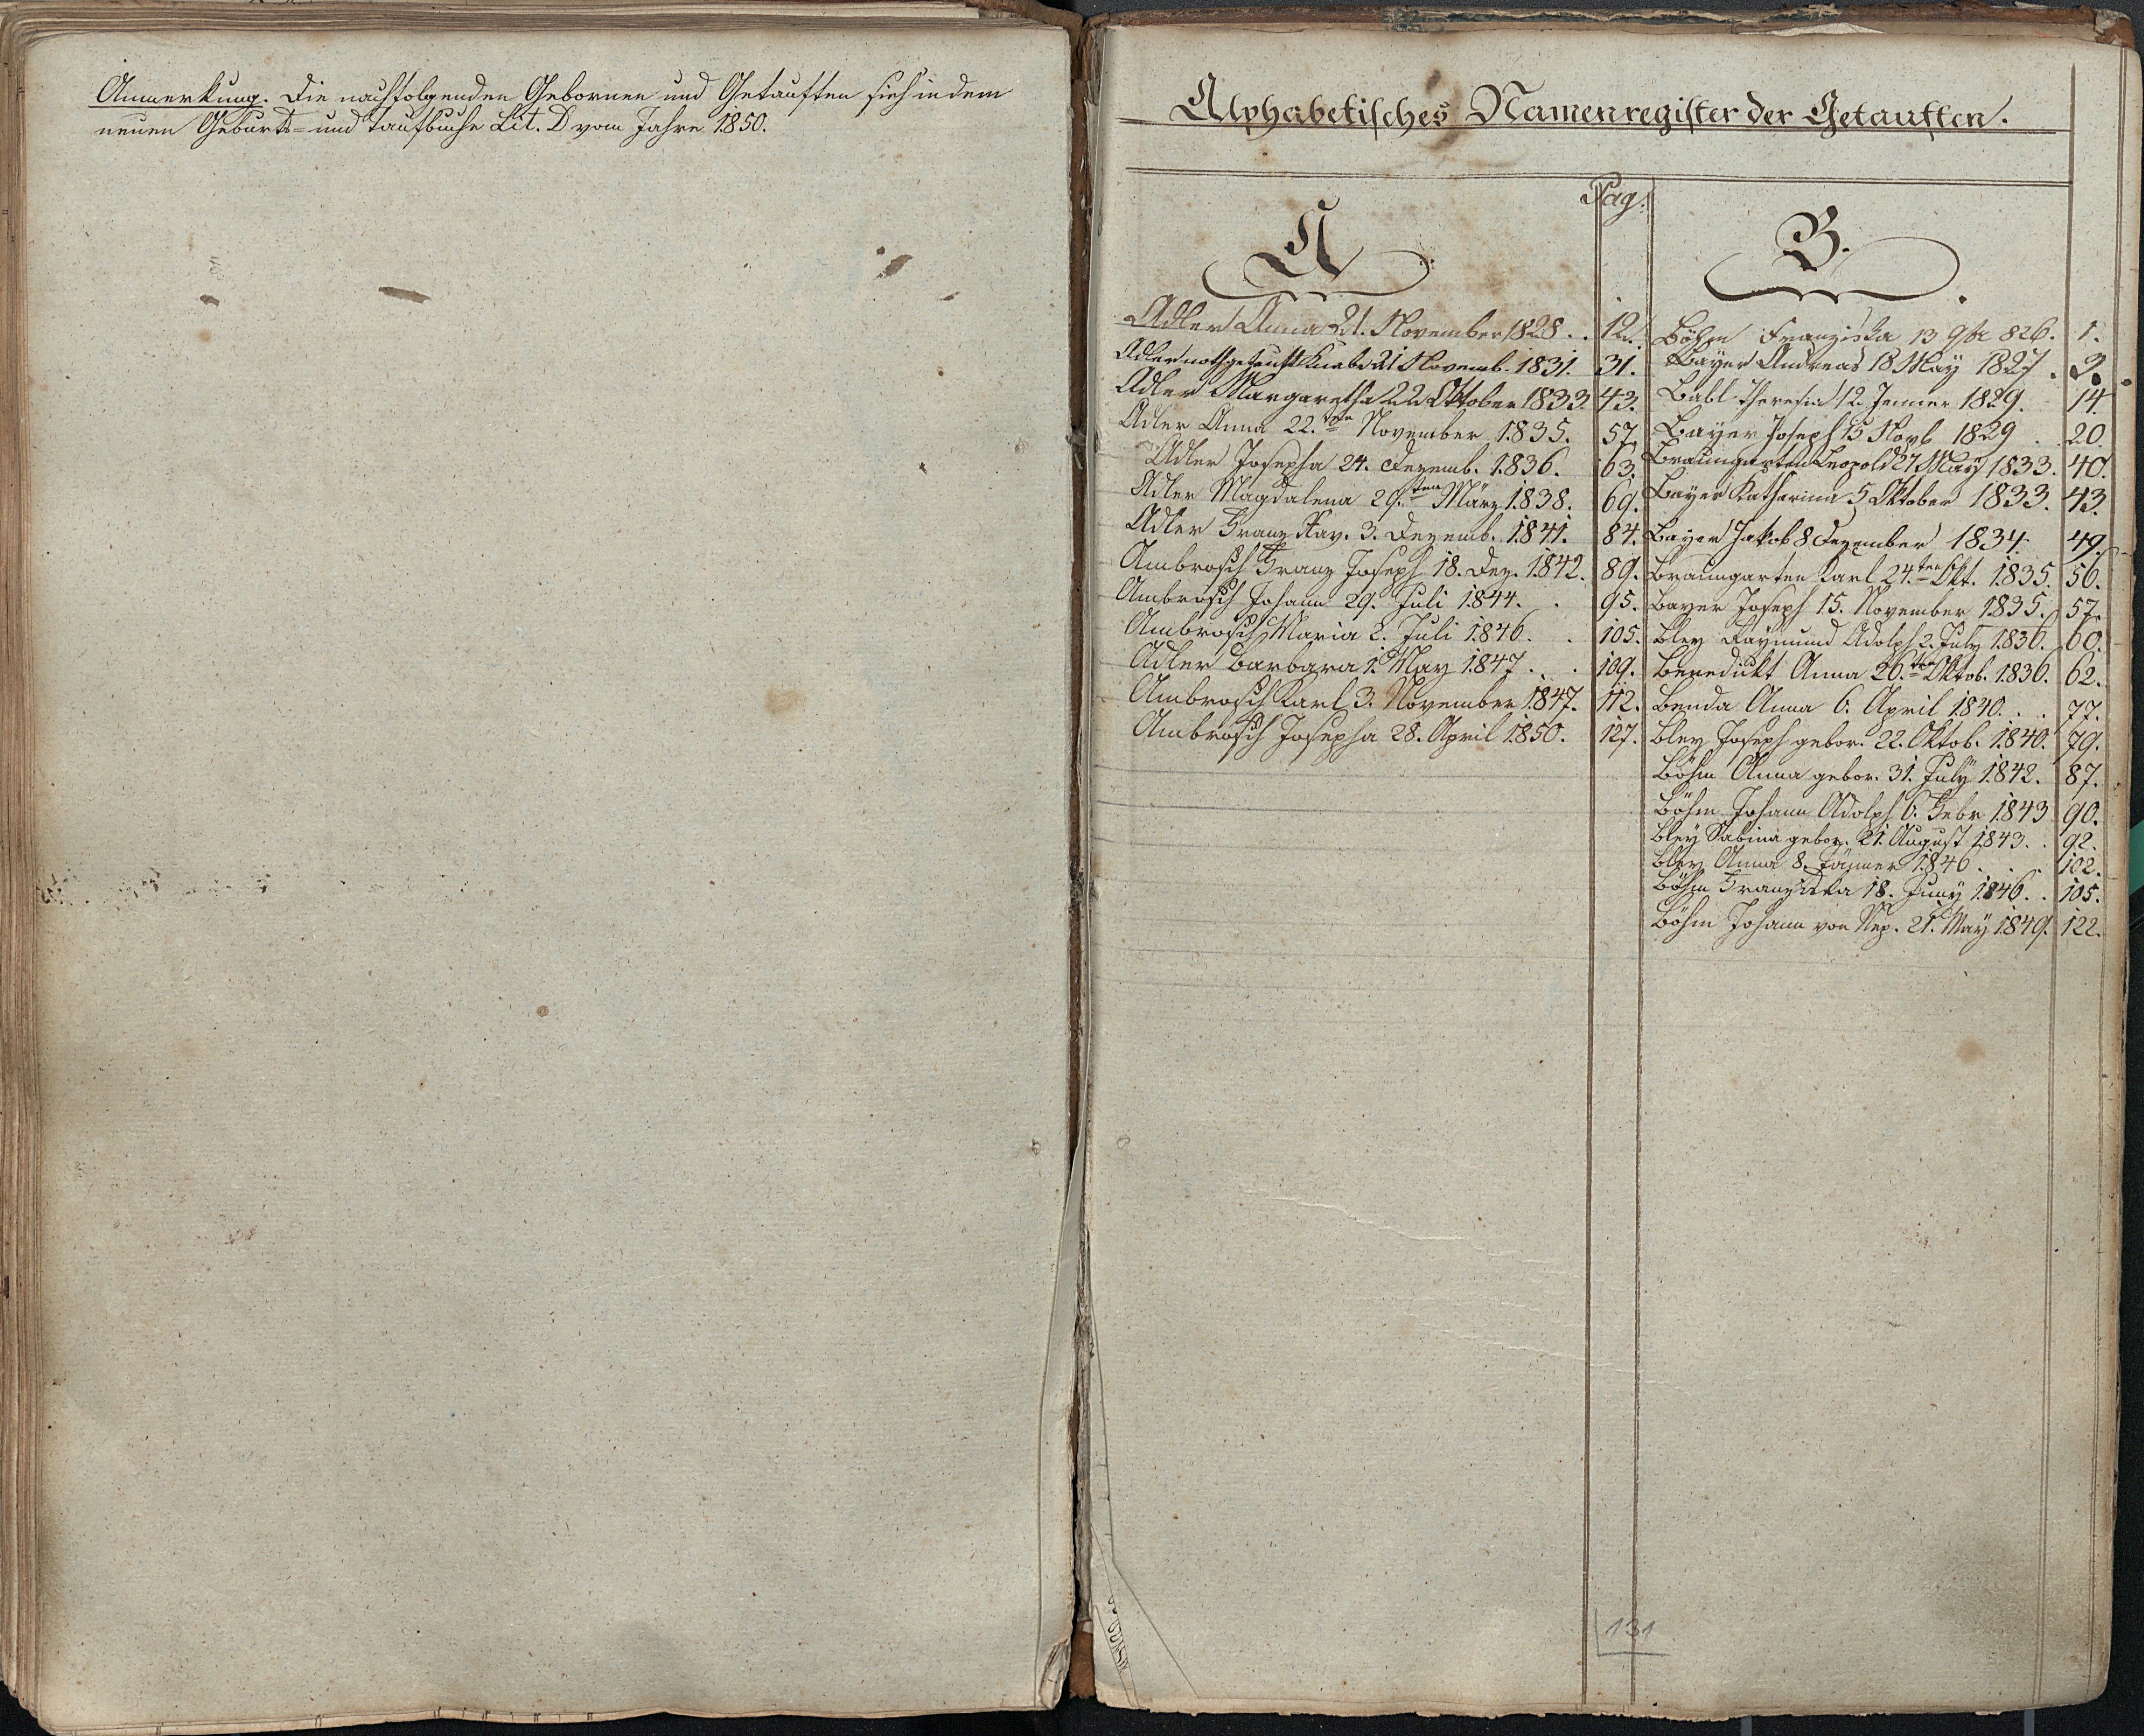 Anmerkung. Die nachfolgenden Gebornen und Getauften sieh in dem
neuen Geburts- und Taufbuche Lit. D vom Jahre 1850.
Alphabetisches Namenregister der Getauften.
Pag.
A
Adler Anna 21. November 1828 . . 12.
Adler nothgetauft Knabe 21 Novemb. 1831. 31.
Adler Margaretha 22 Oktober 1833. 43.
Adler Anna 22.ten November 1835. 57.
Adler Josepha 24. Dezemb. 1836. 63.
Adler Magdalena 29.ten März 1838. 69.
Adler Franz Xav. 3. Dezemb. 1841. 84.
Ambrosch Franz Joseph 18. Dez. 1842. 89.
Ambrosch Johann 29. Juli 1844. . 95.
Ambrosch Maria 2. Juli 1846. . 105.
Adler Barbara 1. May 1847 . . 109.
Ambrosch Karl 3. November 1847. 112.
Ambrosch Josepha 28. April 1850. 127.
B.
Böhm Franziska 13 9br 826. 1.
Bayer Andreas 18 May 1827 . 3.
Babl Theresia 12. Jenner 1829. 14.
Bayer Joseph 15 Novb 1829 . 20.
Braungarten Leopold 27 May 1833. 40.
Bayer Katharina 5 Oktober 1833. 43.
Bayer Jakob 8 Dezember 1834. 49.
Braungarten Karl 24.ten Okt. 1835. 56.
Bayer Joseph 15. November 1835. 57.
Bley Raymund Adolph 2. July 1836. 60.
Benedikt Anna 26.ten Oktob. 1836. 62.
Benda Anna 6. April 1840. . . 77.
Bley Joseph gebor. 22. Oktob. 1840. 79.
Böhm Anna gebor. 31. July 1842. 87.
Böhm Johann Adolph 6. Febr 1843 90.
Bley Sabina gebor. 21. August 1843. . 92.
Bley Anna 8. Jänner 1846 . . . 102.
Böhm Franziska 18. Juny 1846. . 105.
Böhm Johann von Nep. 21. May 1849. 122.
131